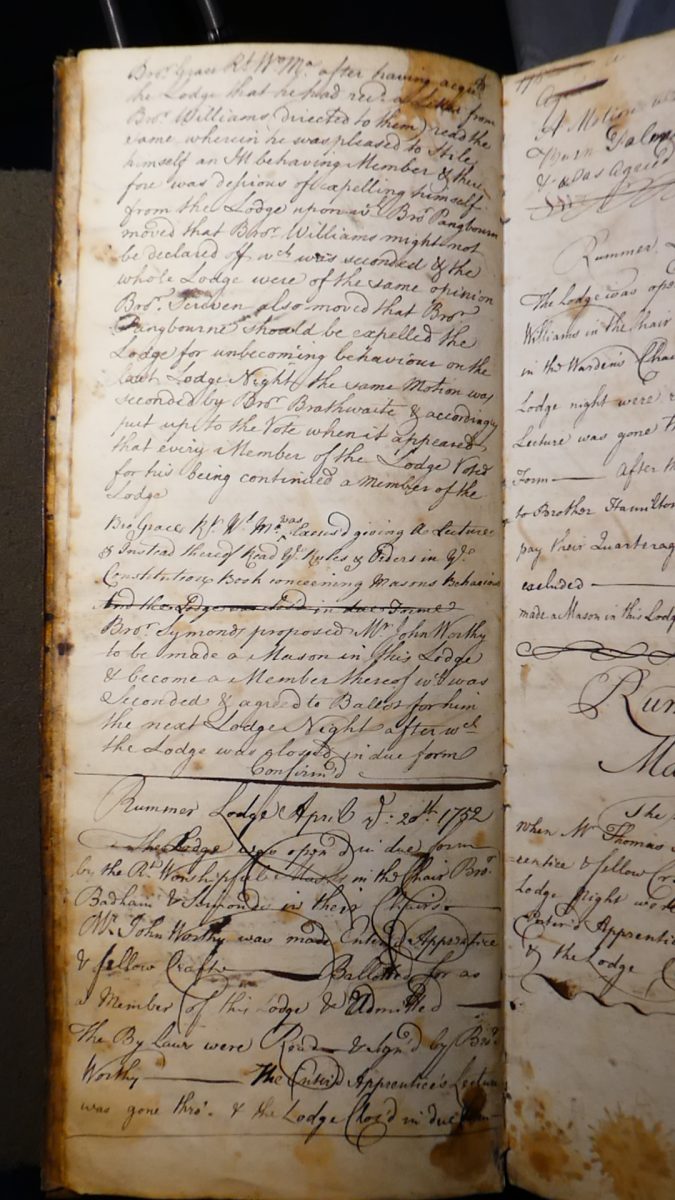 Bror. Grace Rt. Wl. Mr. after having acquitd.
the Lodge that he had recd. a Letter from
Bror. Williams directed to them, read the
same wherein he was pleased to Stile
himself an Ill behaving Member & there
fore was desirous of expelling himself
from the Lodge upon wch. Bror. Pangbourn
moved that Bror. Williams might not
be declared off wch. was seconded & the
whole Lodge were of the same opinion
Bror. also moved that Bror.
Pangbourne should be expelled the
Lodge for unbecoming behaviour on the
last Lodge Night, the same Motion was
seconded by Bror. Brathwaite & accordingly
put up to the Vote when it appeared
that every Member of the Lodge Voted
for his being continued a Member of the
Lodge
Bro Grace Rt. Wl. Mr. was Excus'd giving a Lecture
& Instead thereof Read ye. Rules & Orders in ye.
Constitution Book concerning Masons Behaviour
And the Lodge was Clos'd in due Forme
Bror. Symonds proposed Mr. John Worthy
to be made a Mason in this Lodge
& become a Member thereof wch. was
Seconded & agreed to Ballot for him
the next Lodge Night after wch.
the Lodge was closed in due form
Confirm'd
Rummer Lodge April ye. 20th. 1752
The Lodge was open'd in due form
by the Rt. Worshipful Master in the Chair Bror.
Badham & Symonds in their Chairs
Mr. John Worthy was made Enter'd Apprentice
& fellow Craft Ballotted for as
a Member of this Lodge & Admitted
The By Laws were Read & Sign'd by Bror.
Worthy The Enter'd Apprentice's Lecture
was gone thro'. & the Lodge Clos'd in due form
175
Agr
A Motion
Thorn
& was Agreed
Rummer
The Lodge was ope
Williams in the Chair
in the Wardens Chai
Lodge night were
Lecture was gone t
Form After
to Brother Hamilton
pay their Quarterag
excluded
made a Mason in this Lodg
Rum
Ma
The
When Mr. Thomas
entice & fellow Cr
Lodge Night were
Enter'd Apprenti
& the Lodge